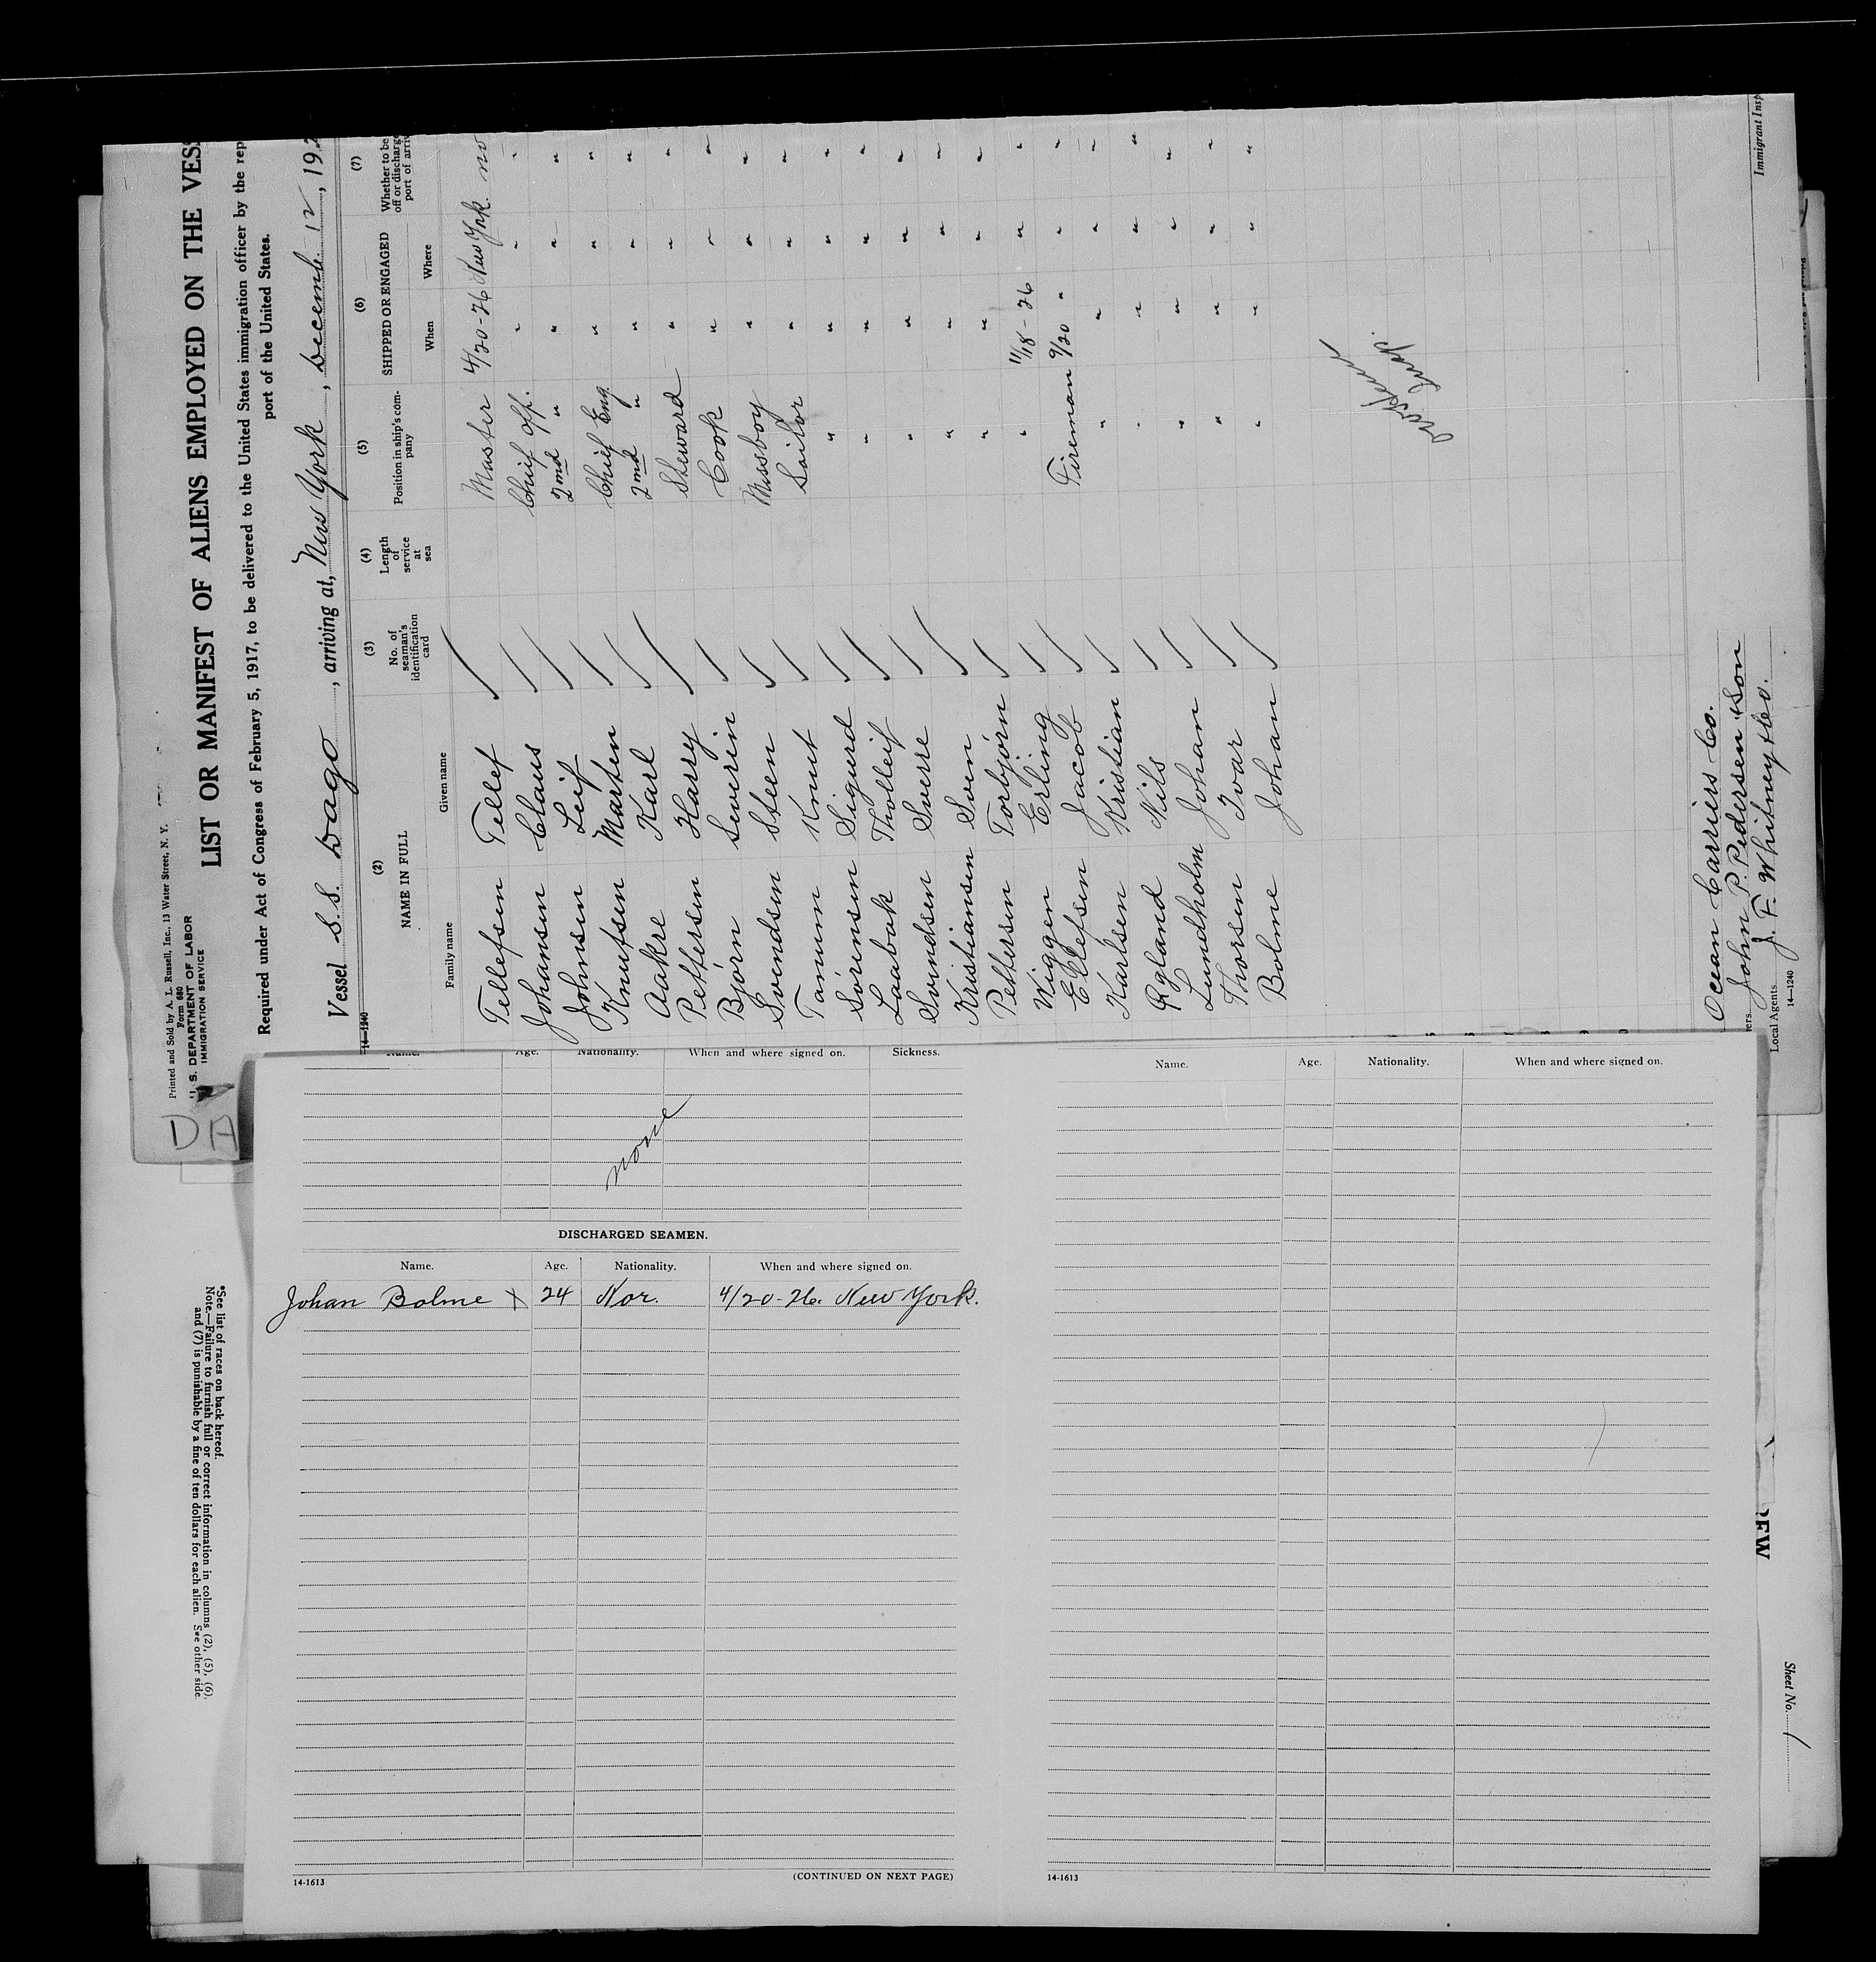 Printed and Sold by A. L. Russell, Inc., 13 Water Street, N. Y.
Form 680
U. S. DEPARTMENT OF LABOR
IMMIGRATION SERVICE
LIST OR MANIFEST OF ALIENS EMPLOYED ON THE VESS
Required under Act of Congress of February 5, 1917, to be delivered to the United States immigration officer by the rep
port of the United States.
Vessel S.S. Dago, arriving at, New York, December 12, 192
14—1240
(2) (3) (4) (5) (6) (7)
NAME IN FULL No. of seaman's identification card Length of service at sea Position in ship's company SHIPPED OR ENGAGED Whether to be
off or discharge
port of arriv
Family name Given name When Where
Tellefsen Tellef / Master 4/20-26 New York no
Johansen Claus / Chief Off. " " "
Johnsen Leif / 2nd " " " "
Knutsen Marten / Chief Eng. " " "
Aakre Karl / 2nd " " " "
Pettersen Harry / Steward " " "
Bjørn Severin / Cook " " "
Svendsen Steen / Messboy " " "
Tannen Knut / Sailor " " "
Sørensen Sigurd / " " " "
Laabak Tholleif / " " " "
Svendsen Sverre / " " " "
Kristiansen Sven / " " " "
Pettersen Torbjørn / " " " "
Wiggen Erling / " 11/18-26 " "
Ellefsen Jacob / Fireman 9/20 " " "
Karlsen Kristian / " " " "
Egland Nils / " " " "
Lundholm Johan / " " " "
Thorsen Ivar / " " " "
Bolme Johan / " " " "
Insp.
Ocean Carriers Co.
John P. Pedersen & Son
ers.
Local Agents J. F. Whitney & Co.
14—1240
Immigrant Insp
DA
Name. Age. Nationality. When and where signed on. Sickness.
none
DISCHARGED SEAMEN.
Name. Age. Nationality. When and where signed on.
Johan Bolme X 24 Nor. 4/20-26. New York.
(CONTINUED ON NEXT PAGE)
14-1613
Name. Age. Nationality. When and where signed on.
14-1613
*See list of races on back hereof.
Note.—Failure to furnish full or correct information in columns (2), (5), (6),
and (7) is punishable by a fine of ten dollars for each alien. See other side
REW
Sheet No. 1